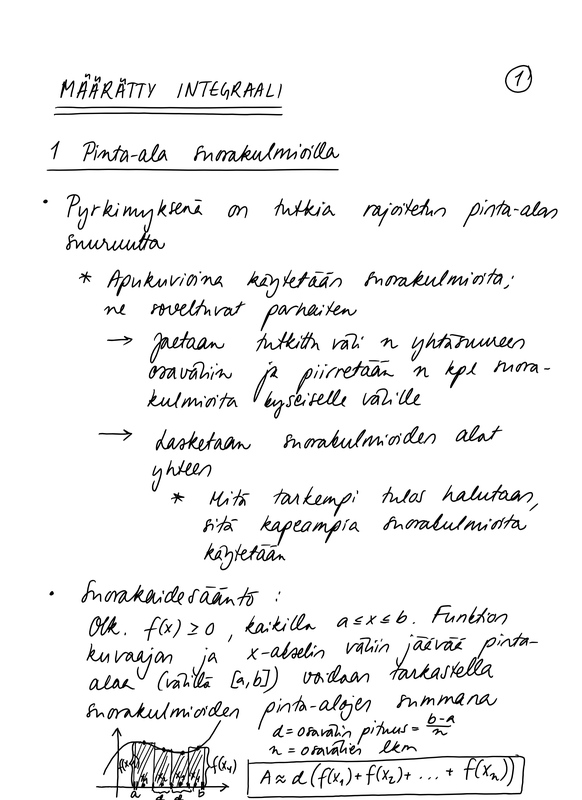 MÄÄRÄTTY INTEGRAALI
①
1 Pinta-ala suorakulmioilla
• Pyrkimyksenä on tutkia rajoitetun pinta-alan
suuruutta
* Apukuvioina käytetään suorakulmioita;
ne soveltuvat parhaiten
→ Jaetaan tutkittu väli n yhtäsuureen
osaväliin ja piirretään n kpl suora-
kulmioita kyseiselle välille
→ Lasketaan suorakulmioiden alat
yhteen
* Mitä tarkempi tulos halutaan,
sitä kapeampia suorakulmioita
käytetään
• Suorakaidesääntö :
Olk. f(x) ≥ 0 , kaikilla a ≤ x ≤ b. Funktion
kuvaajan ja x-akselin väliin jäävää pinta-
alaa (välillä [a,b]) voidaan tarkastella
suorakulmioiden pinta-alojen summana
d = osavälin pituus = b-a/n
n = osavälien lkm
a d d b
A ≈ d (f(x₁) + f(x₂) + ... + f(xₙ))